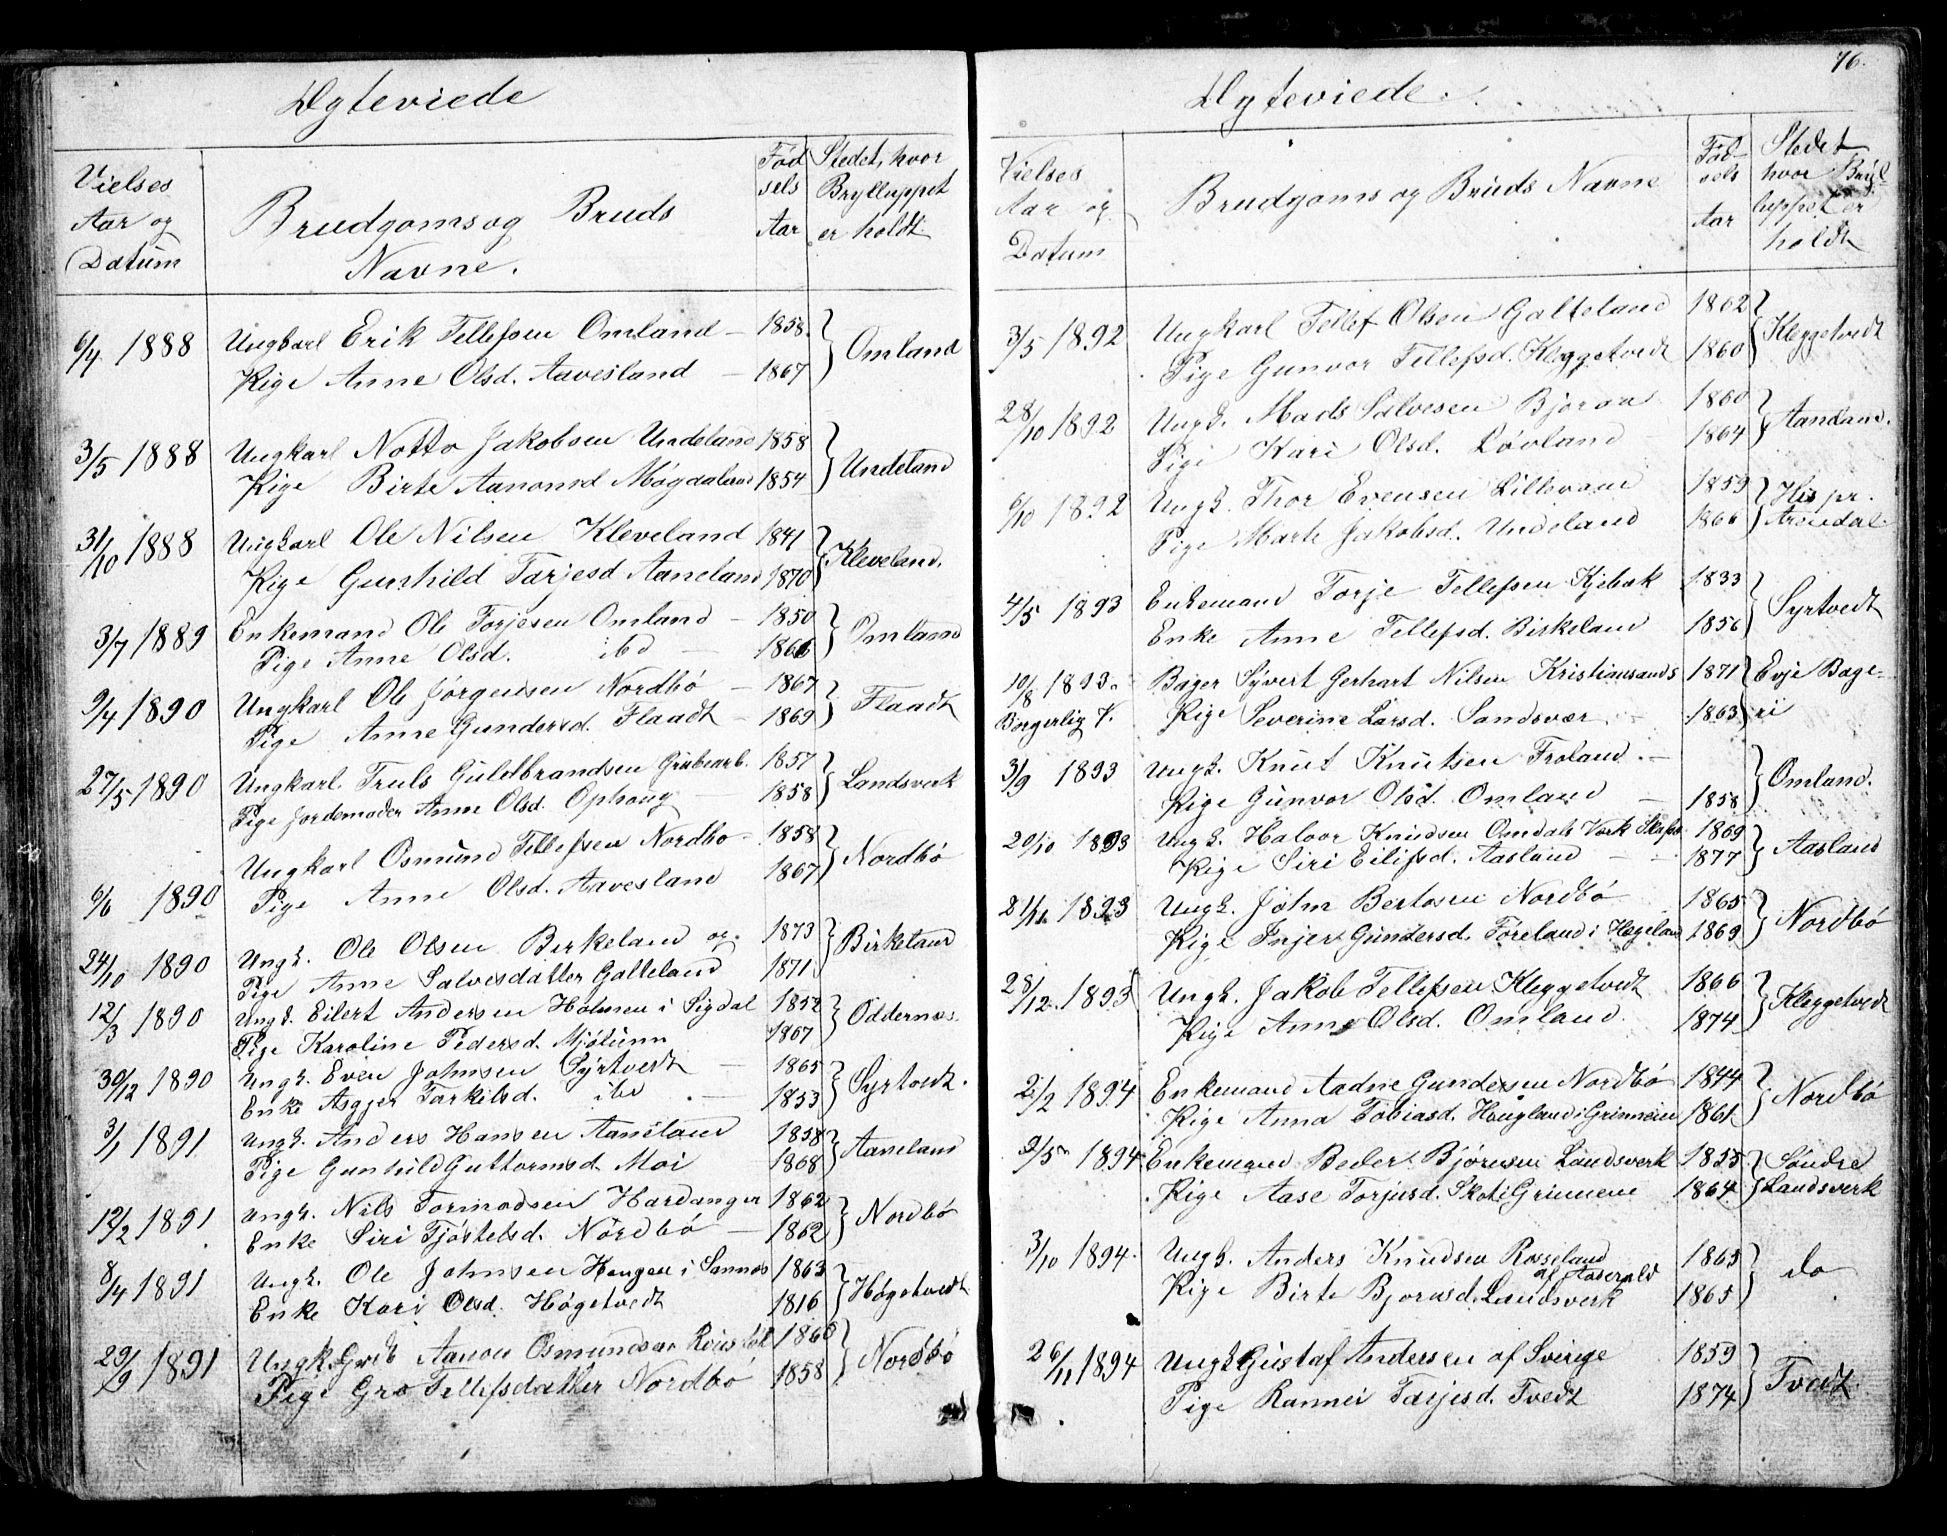 Ægteviede
Vielses Aar og Datum
Brudgoms og Bruds Navne.
Fødsels Aar
Stedet, hvor Brylluppet er holdt.
6/4 1888 Ungkarl Erik Tellefsen Omland – 1858. } Omland
Pige Anne Olsd. Aavesland – 1867
3/5 1888 Ungkarl Notto Jakobsen Undeland 1858 } Undeland
Pige Birte Aanonsd Møgdaland 1854
31/10 1888 Ungkarl Ole Nilsen Kleveland 1841 } Kleveland.
Pige Gunhild Tarjesd Aaneland 1870
3/7 1889 Enkemand Ole Torjesen Omland – 1850 } Omland
Pige Anne Olsd. ibd – 1866
9/4 1890 Ungkarl Ole Jørgensen Nordbø – 1867 } Flaadt
Pige Anne Gundersd. Flaadt – 1869
27/5 1890 Ungkarl Truls Guldbrandsen Grubearb. 1857 } Landsverk
Pige Jordemoder Anne Olsd. Ophaug 1858
Ungkarl Osmund Tellefsen Nordbø – 1858 } Nordbø
6/6 1890 Pige Anne Olsd. Aavesland 1867
24/10 1890 Ungk. Ole Olsen Birkeland og 1873 } Birkeland
Pige Anne Salvesdatter Galteland 1871
12/3 1890 Ungk. Eilert Andersen Holmen i Sigdal 1852 } Oddernæs
Pige Karoline Pedersd. Mjølunn 1867
30/12 1890 Ungk. Even Johnsen Syrtvedt – 1865 } Syrtvedt.
Enke Asgjer Tarkilsd. ibd – 1853
3/1 1891. Ungk. Anders Hansen Aaneland 1858 } Aaneland
Pige Gunhild Guttormsd. Moi 1868
12/2 1891 Ungk. Nils Tormodsen Hardanger 1862 } Nordbø
Enke Siri Tjøstelsd. Nordbø – 1862
8/4 1891 Ungk. Ole Johnsen Haugen i Sannæs 1863 } Høgetvedt
Enke Kari Olsd. Høgetvedt 1816
29/9 1891 Ungk. Aanon Osmundsen 1860 } Nordbø
Pige Gro Tellefsdatter Nordbø 1858
76.
Ægteviede.
Vielses Aar og Datum
Brudgoms og Bruds Navne
Fødsels Aar
Stedet hvor Bryluppet er holdt
3/5 1892 Ungkarl Tellef Olsen Galteland 1862 } Kleggetvedt
Pige Gunvor Tellefsd. Kleggetvedt 1860
28/10 1892 Ungk. Mads Salvesen Bjoraa 1860 } Aandland.
Pige Kari Olsd. Løvland 1864
6/10 1892 Ungk. Thor Evensen Lillevand 1859 } His pr. Arendal.
Pige Marte Jakobsd. Undeland 1866
4/5 1893 Enkemand Torje Tellefsen Kjebæk 1833 } Syrtvedt
Enke Anne Tellefsd. Birkeland 1856
10/8 1893. Bager Syvert Gerhart Nilsen Kristiansands 1871 } Evje Bage-
Borgerlig V. Pige Severine Larsd. Sandsvær – 1863 } ri
3/9 1893 Ungk. Knut Knutsen Froland. – } Omland.
Pige Gunvor Olsd. Omland – 1858
20/10 1893 Ungk. Halvor Knudsen Omdals Værk 1869 } Aasland
Pige Siri Eilifsd. Aasland – 1877
21/12 1893 Ungk. John Bertosen Nordbø 1865 } Nordbø
Pige Injer Gundersd. Føreland i Hægeland 1869
28/12. 1893 Ungk. Jakob Tellefsen Kleggetvedt 1866 } Kleggetvedt
Pige Anne Olsd. Omland 1874
2/2 1894 Enkemand Aadne Gundersen Nordbø 1844 } Nordbø
Pige Anna Tobiasd. Haugland i Grimnein 1861
2/5 1894 Enkemand Beder Bjørnsen Landsverk 1855 } Søndre
Pige Aase Torjusd. Skoti Grinnene 1864 } Landsverk
3/10 1894. Ungk. Anders Knudsen Rosseland 1865 } do
af Aaseral
Pige Birte Bjornsd. Landsverk 1865
26/11 1894 Ungk. Gustaf Andersen af Sverige 1859 } Tvedt
Pige Rannei Tarjesd. Tvedt 1874